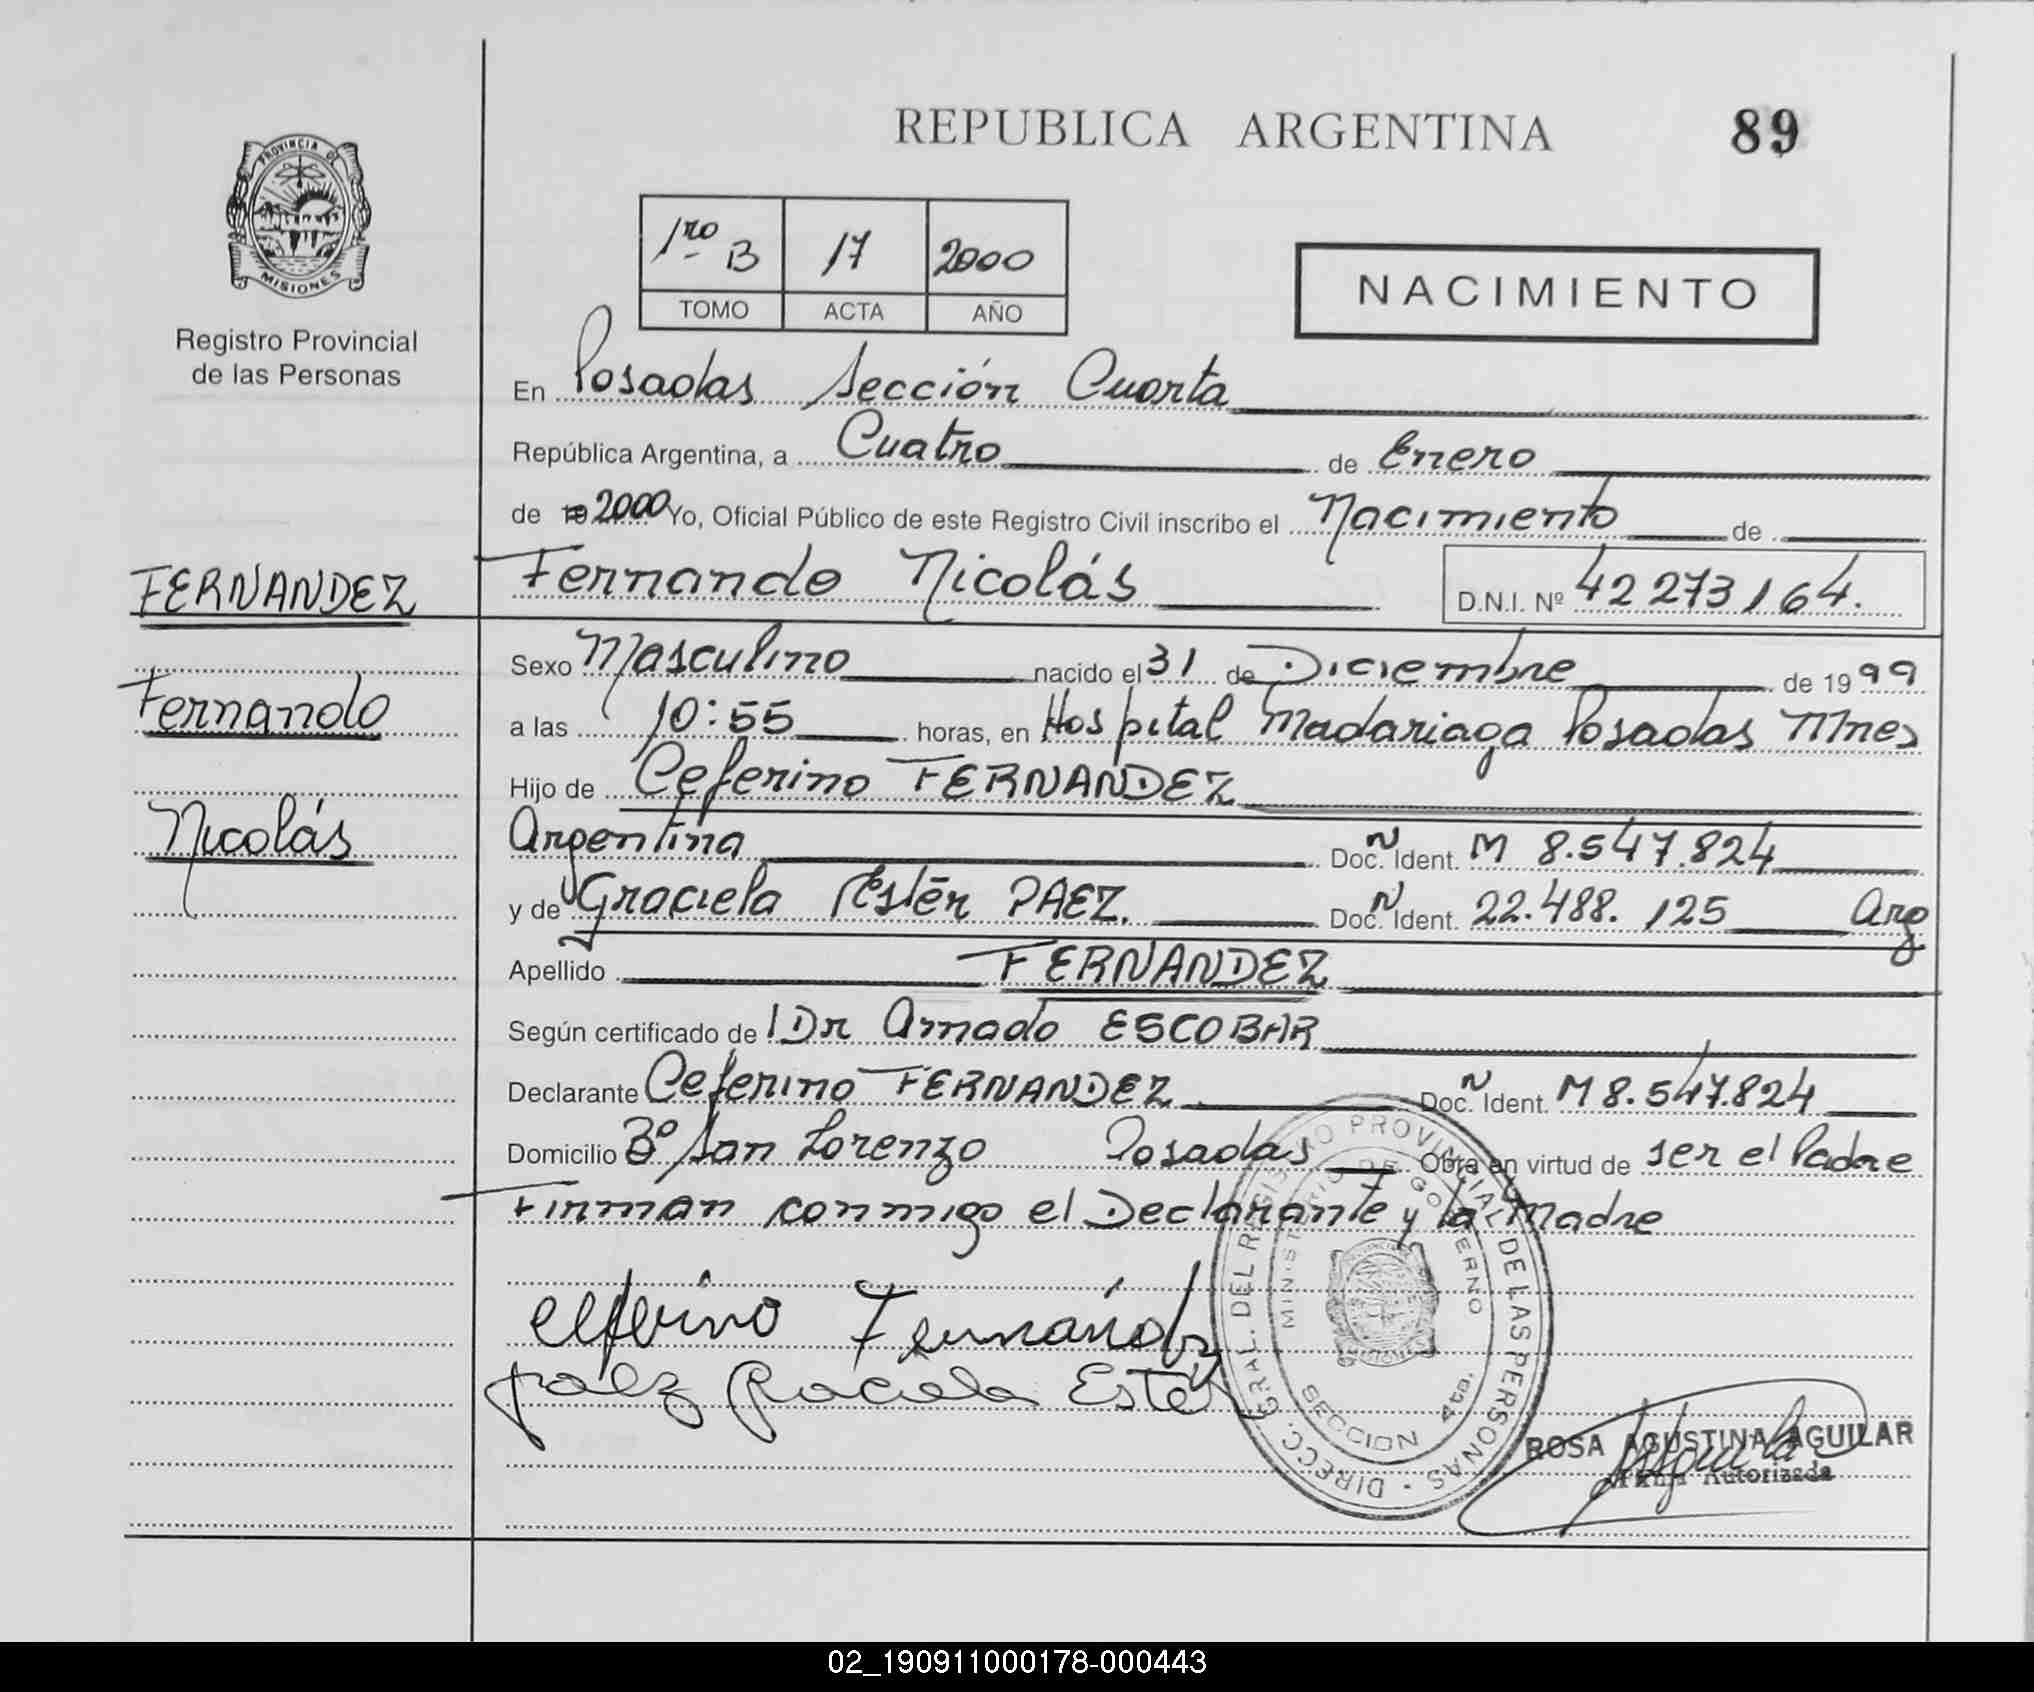 REPUBLICA ARGENTINA 89
PROVINCIA DE
MISIONES
Registro Provincial
de las Personas
1ro B 17 2000
TOMO ACTA AÑO
NACIMIENTO
En Posadas Sección Cuarta
República Argentina, a Cuatro de Enero
de 19 2000 Yo, Oficial Público de este Registro Civil inscribo el Nacimiento de
FERNANDEZ
Fernando Nicolás D.N.I. Nº 42273164.
Sexo Masculino nacido el 31 de Diciembre de 1999
Fernando
a las 10:55 horas, en Hospital Madariaga Posadas Mnes
Hijo de Ceferino FERNANDEZ
Nicolás
Argentina Doc. Ident. M 8.547.824
y de Graciela Estér PAEZ. Doc. Ident. 22.488.125 Arg
Apellido FERNANDEZ
Según certificado de Dr Amado ESCOBAR
Declarante Ceferino FERNANDEZ Doc. Ident. M 8.547.824
Domicilio Bº San Lorenzo Posadas Obra en virtud de ser el Padre
Firman conmigo el Declarante y la Madre
Ceferino Fernández
Paez Graciela Ester
DIRECC. GRAL. DEL REGISTRO PROVINCIAL DE LAS PERSONAS
MINISTERIO DE GOBIERNO
SECCION 4ta.
ROSA AGUSTINA AGUILAR
Firma Autorizada
02_190911000178-000443